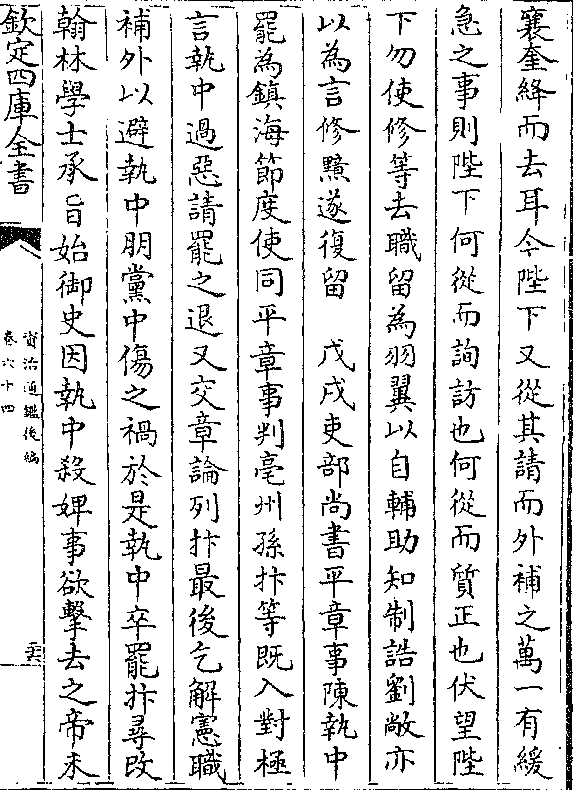 襄奎絳而去耳今陛下又從其請而外補之萬一有緩
急之事則陛下何從而詢訪也何從而質正也伏望陛
下勿使修等去職留為羽翼以自輔助知制誥劉敞亦
以為言修黯遂復留　戊戌吏部尚書平章事陳執中
罷為鎮海節度使同平章事判亳州孫抃等既入對極
言執中過惡請罷之退又交章論列抃最後乞解憲職
補外以避執中朋黨中傷之禍於是執中卒罷抃尋改
翰林學士承旨始御史因執中殺婢事欲擊去之帝未
欽定四庫全書
資治通鑑後編
卷六十四